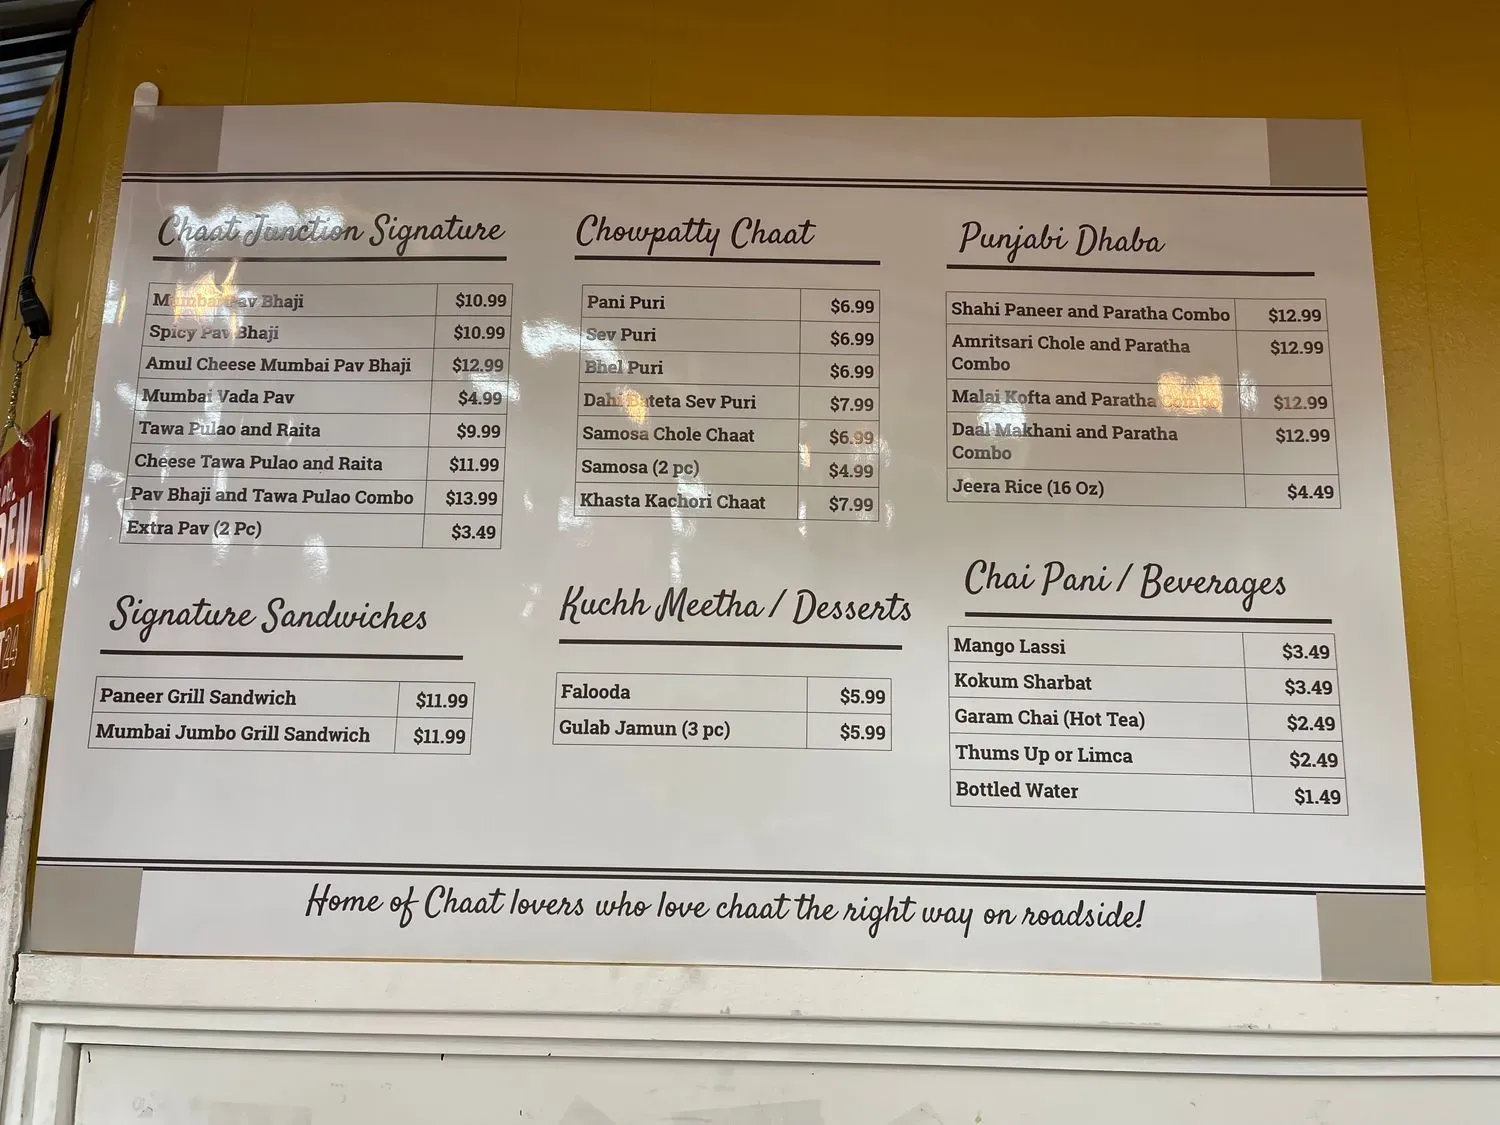 Chaat Junction Signature
Mumbai Pav Bhaji $10.99
Spicy Pav Bhaji $10.99
Amul Cheese Mumbai Pav Bhaji $12.99
Mumbai Vada Pav $4.99
Tawa Pulao and Raita $9.99
Cheese Tawa Pulao and Raita $11.99
Pav Bhaji and Tawa Pulao Combo $13.99
Extra Pav (2 Pc) $3.49
Signature Sandwiches
Paneer Grill Sandwich $11.99
Mumbai Jumbo Grill Sandwich $11.99
Chowpatty Chaat
Pani Puri $6.99
Sev Puri $6.99
Bhel Puri $6.99
Dahi Bateta Sev Puri $7.99
Samosa Chole Chaat $6.99
Samosa (2 pc) $4.99
Khasta Kachori Chaat $7.99
Kuchh Meetha / Desserts
Falooda $5.99
Gulab Jamun (3 pc) $5.99
Punjabi Dhaba
Shahi Paneer and Paratha Combo $12.99
Amritsari Chole and Paratha $12.99
Combo
Malai Kofta and Paratha Combo $12.99
Daal Makhani and Paratha $12.99
Combo
Jeera Rice (16 Oz) $4.49
Chai Pani / Beverages
Mango Lassi $3.49
Kokum Sharbat $3.49
Garam Chai (Hot Tea) $2.49
Thums Up or Limca $2.49
Bottled Water $1.49
Home of Chaat lovers who love chaat the right way on roadside!